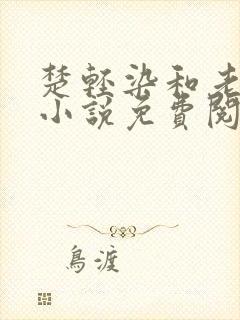 楚轻染和老
小説免費閱
鳥渡